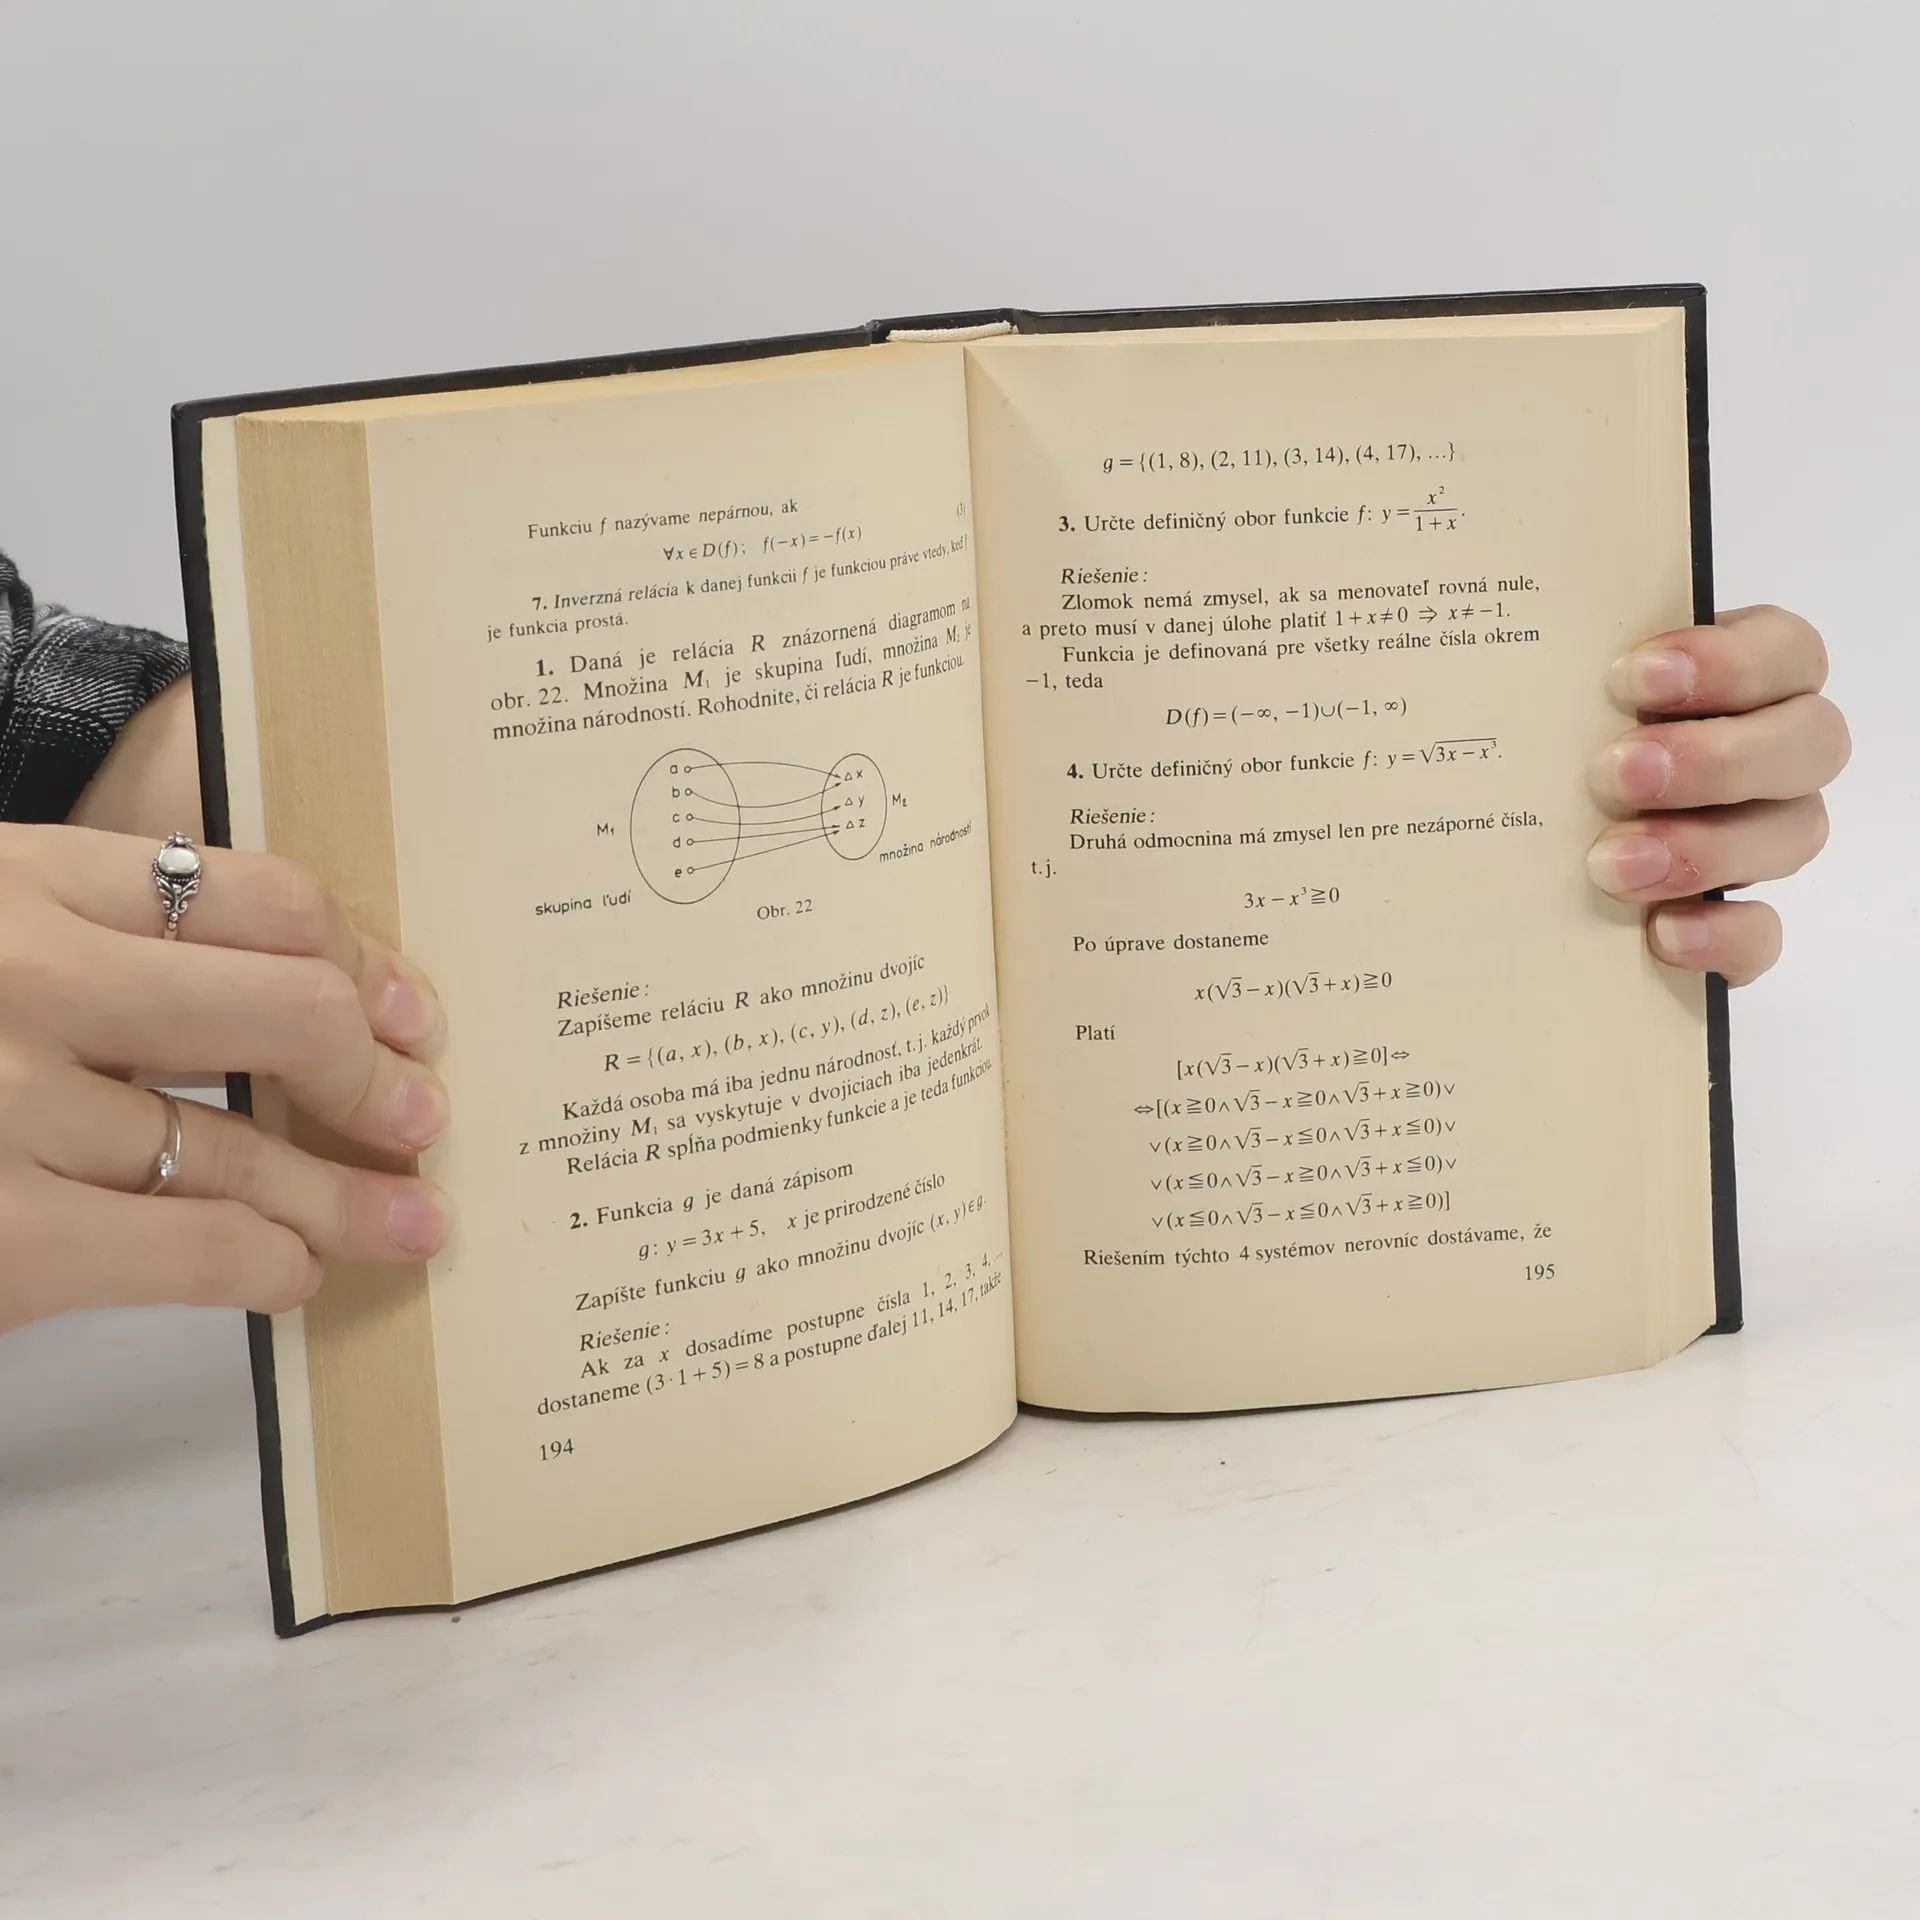 Funkciu f nazývame nepárnou, ak
∀x∈D(f); f(−x)=−f(x) (3)
7. Inverzná relácia k danej funkcii f je funkciou práve vtedy, keď f
je funkcia prostá.
1. Daná je relácia R znázornená diagramom na
obr. 22. Množina M₁ je skupina ľudí, množina M₂ je
množina národností. Rohodnite, či relácia R je funkciou.
a
b
c
d
e
x
y
z
M₁
M₂
množina národností
skupina ľudí
Obr. 22
Riešenie:
Zapíšeme reláciu R ako množinu dvojíc
R={(a, x), (b, x), (c, y), (d, z), (e, z)}
Každá osoba má iba jednu národnosť, t.j. každý prvok
z množiny M₁ sa vyskytuje v dvojiciach iba jedenkrát.
Relácia R spĺňa podmienky funkcie a je teda funkciou.
2. Funkcia g je daná zápisom
g: y=3x+5, x je prirodzené číslo
Zapíšte funkciu g ako množinu dvojíc (x, y)∈g.
Riešenie:
Ak za x dosadíme postupne čísla 1, 2, 3, 4, ...
dostaneme (3·1+5)=8 a postupne ďalej 11, 14, 17, takže
194
g={(1, 8), (2, 11), (3, 14), (4, 17), ...}
3. Určte definičný obor funkcie f: y=x²/(1+x).
Riešenie:
Zlomok nemá zmysel, ak sa menovateľ rovná nule,
a preto musí v danej úlohe platiť 1+x≠0 ⇒ x≠−1.
Funkcia je definovaná pre všetky reálne čísla okrem
−1, teda
D(f)=(−∞, −1)∪(−1, ∞)
4. Určte definičný obor funkcie f: y=√(3x−x³).
Riešenie:
Druhá odmocnina má zmysel len pre nezáporné čísla,
t.j.
3x−x³≧0
Po úprave dostaneme
x(√3−x)(√3+x)≧0
Platí
[x(√3−x)(√3+x)≧0]⇔
⇔[(x≧0∧√3−x≧0∧√3+x≧0)∨
∨(x≧0∧√3−x≦0∧√3+x≦0)∨
∨(x≦0∧√3−x≧0∧√3+x≦0)∨
∨(x≦0∧√3−x≦0∧√3+x≧0)]
Riešením týchto 4 systémov nerovníc dostávame, že
195